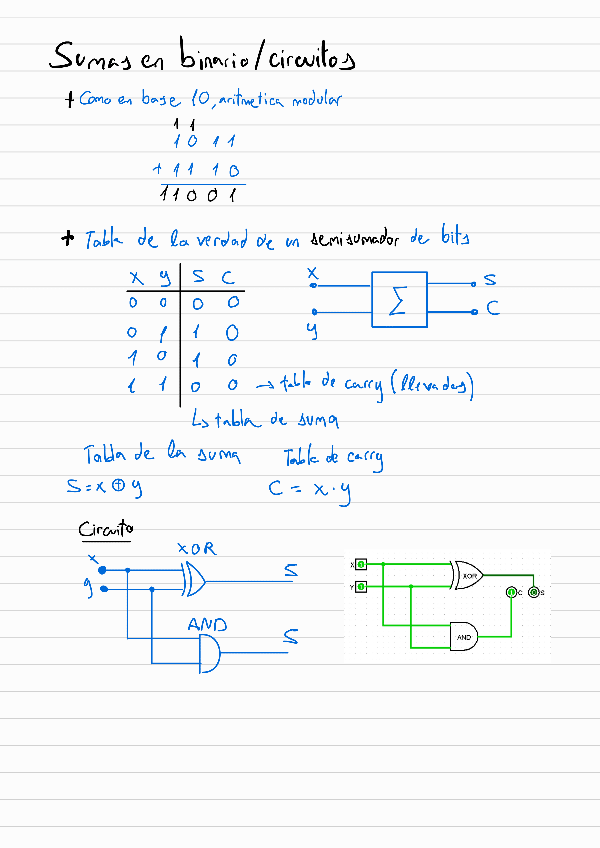 Sumas en binario/circuitos
+ Como en base 10, aritmetica modular
1 1
1 0 1 1
+ 1 1 1 0
1 1 0 0 1
+ Tabla de la verdad de un semisumador de bits
x y S C
0 0 0 0
0 1 1 0
1 0 1 0
1 1 0 0 → tabla de carry (llevadas)
↳ tabla de suma
x
y
Σ
S
C
Tabla de la suma
S = x ⊕ y
Table de carry
C = x · y
Circuito
x
y
XOR
S
AND
S
X 1
Y 1
XOR
AND
1 C
0 S